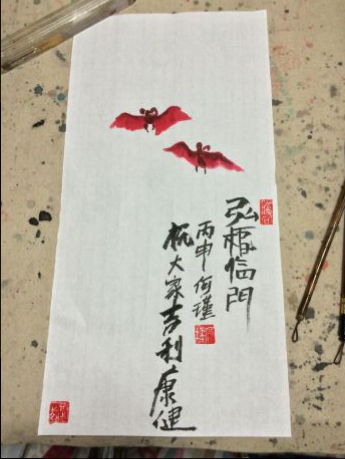 弘福临門
丙申何瑾
祝大家吉利康健